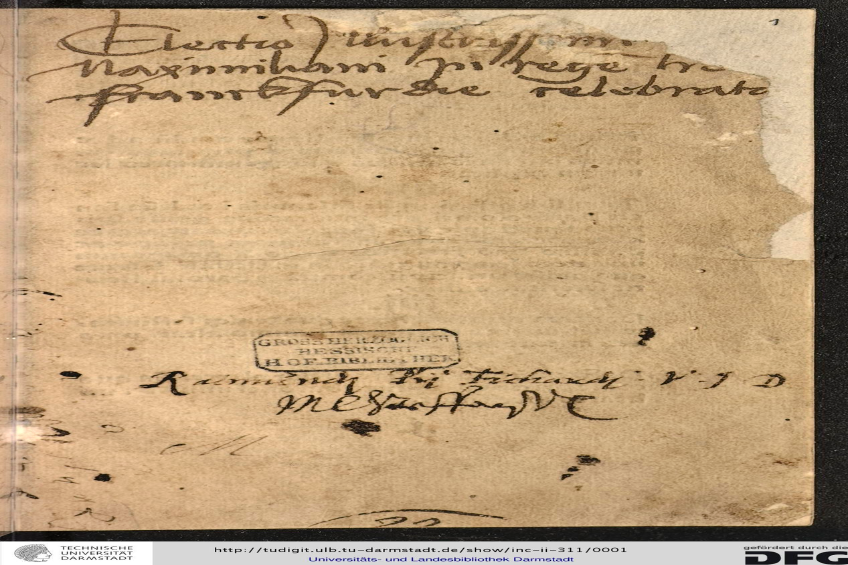 Electio Illustrissimi
Maximiliani in regē
franckfurdie celebrata
GROSSHERZOGLICH
HESSISCHE
HOFBIBLIOTHEK
Raimundi Pij Fichardi V. I. D
TECHNISCHE
UNIVERSITÄT
DARMSTADT
http://tudigit.ulb.tu-darmstadt.de/show/inc-ii-311/0001
Universitäts- und Landesbibliothek Darmstadt
gefördert durch die
DFG